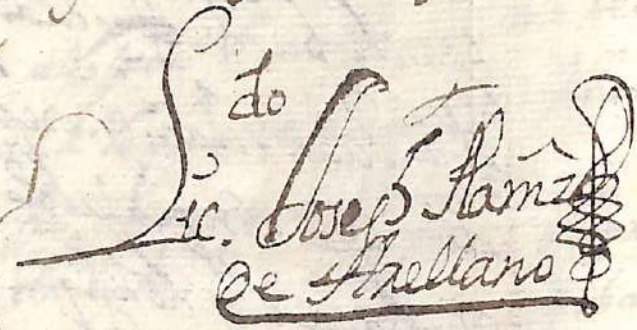 Lic.do Joseph Ramz
de Arellano